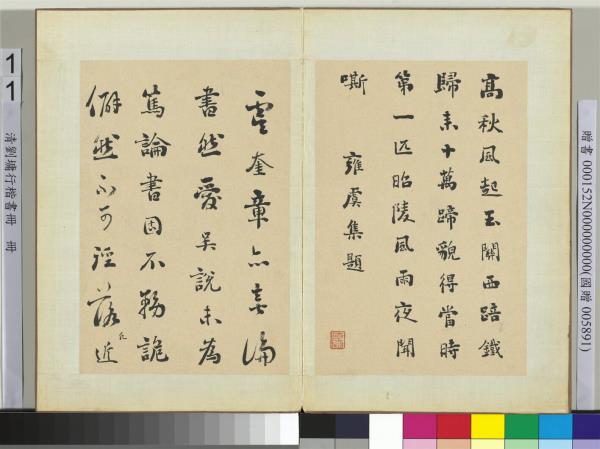 高秋風起玉關西踣鐵
歸来十萬蹄貌得當時
第一匹昭陵風雨夜聞
嘶 雍虞集題
虞奎章亦喜論
書然愛吳說未為
篤論書固不務詭
僻然不可徑落凡近
11
清劉墉行楷書冊 冊
贈書 000152N000000000(國贈 005891)